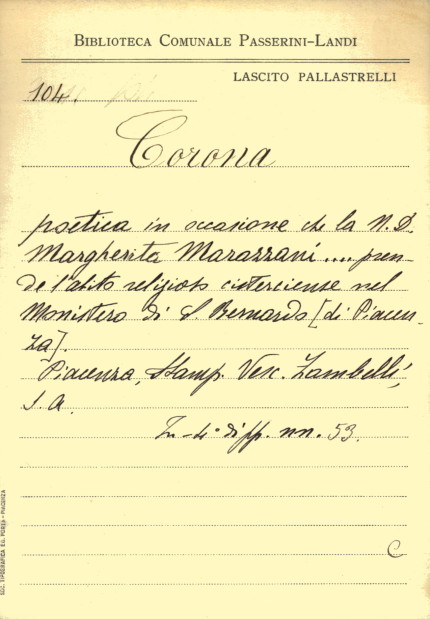 BIBLIOTECA COMUNALE PASSERINI-LANDI
LASCITO PALLASTRELLI
104.
Corona
poetica in occasione che la N. D.
Margherita Marazzani .... pren-
de l'abito religioso cisterciense nel
Monistero di S. Bernardo [di Piacen-
za].
Piacenza, Stamp. Vesc. Zambelli,
s. a.
In-4° di pp. nn. 53.
C